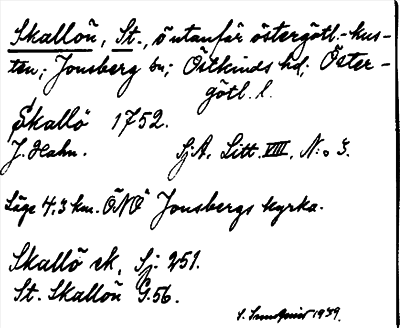 Skallön, St., ö utanför östergötl.-kus-
ten; Jonsberg sn; Östkinds hd; Öster-
götl. l.
Skallö 1752.
J. Hahn. SjA, Litt. VIII, N:o 3.
Läge 4,3 km. ÖNÖ Jonsbergs kyrka.
Skallö ek, Sj: 251.
St. Skallön G.56.
S. 1939.